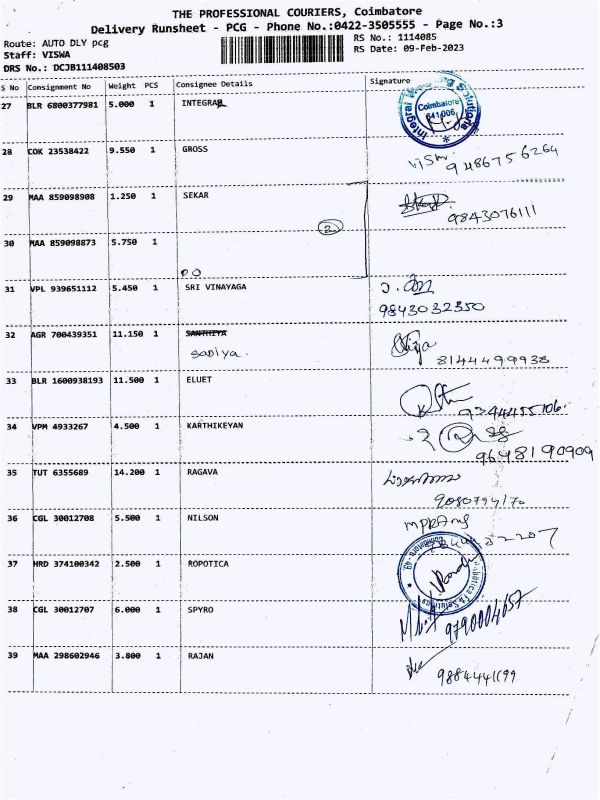 THE PROFESSIONAL COURIERS, Coimbatore
Delivery Runsheet - PCG - Phone No.:0422-3505555 - Page No.:3
Route: AUTO DLY pcg
Staff: VISWA
DRS No.: DCJB111408503
RS No.: 1114085
RS Date: 09-Feb-2023
S No Consignment No Weight PCS Consignee Details Signature
27 BLR 6800377981 5.000 1 INTEGRAL
Coimbatore
641 006
28 COK 23538422 9.550 1 GROSS
9486756264
29 MAA 859098908 1.250 1 SEKAR
9843076111
2
30 MAA 859098873 5.750 1
31 VPL 939651112 5.450 1 SRI VINAYAGA
9843032350
32 AGR 700439351 11.150 1 SANTHIYA
Sadiya.
8144499938
33 BLR 1600938193 11.500 1 ELUET
9344455106
34 VPM 4933267 4.500 1 KARTHIKEYAN
9648190909
35 TUT 6355689 14.200 1 RAGAVA
36 CGL 30012708 5.500 1 NILSON
37 HRD 374100342 2.500 1 ROPOTICA
38 CGL 30012707 6.000 1 SPYRO
9790004657
39 MAA 298602946 3.800 1 RAJAN
9884441199